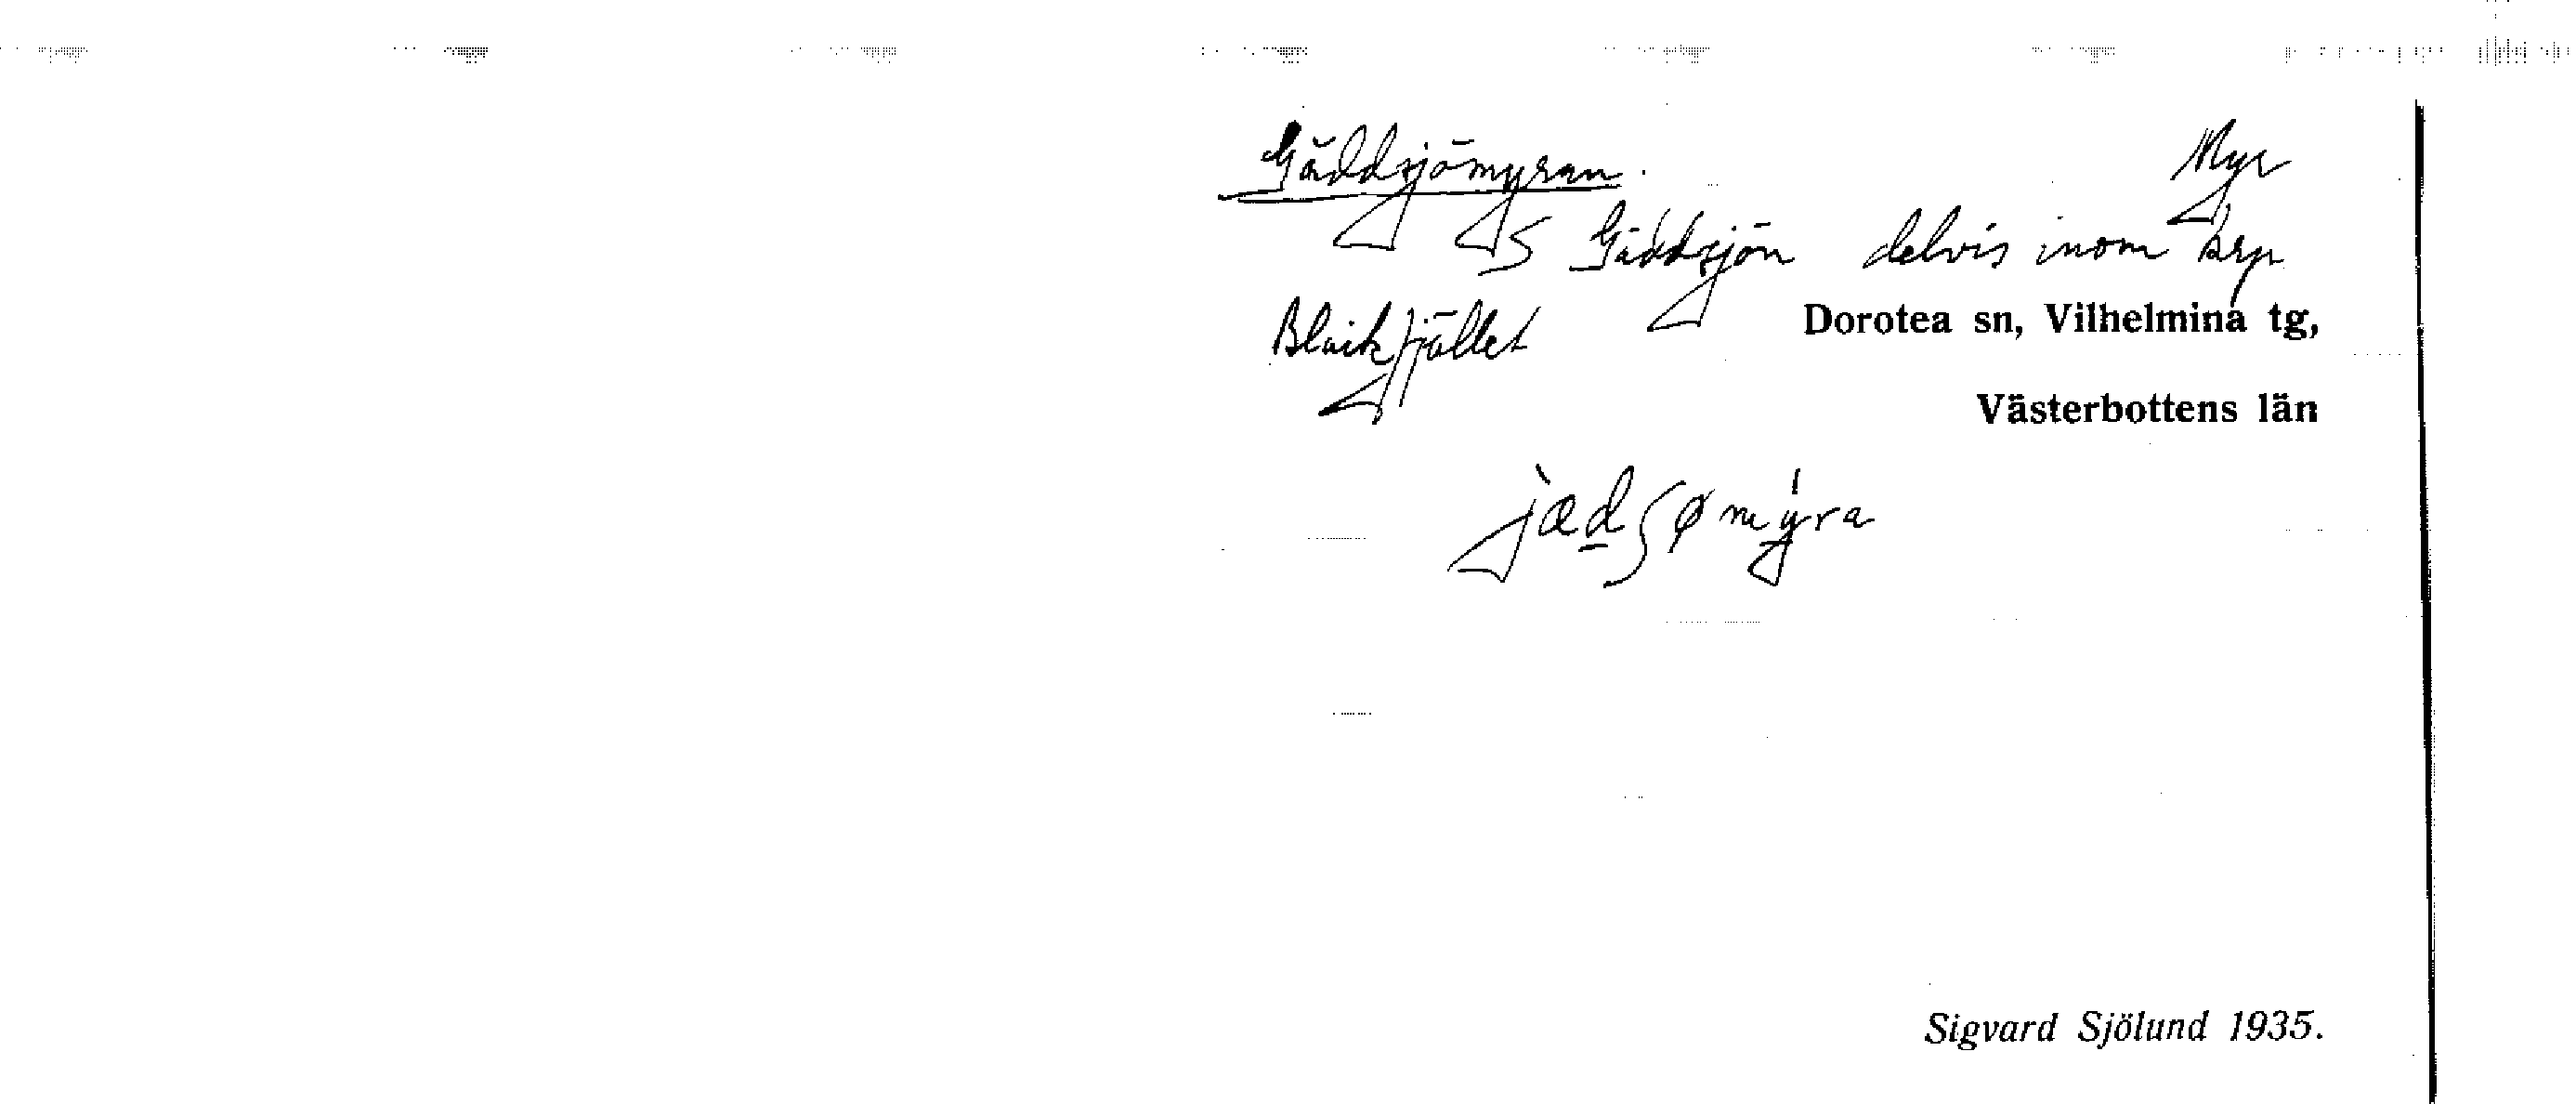 Gäddsjömyran. Myr
S Gäddsjön delvis inom krp
Blaikfjället
Dorotea sn, Vilhelmina tg,
Västerbottens län
j̀æd̲ʃømy̍ra
Sigvard Sjölund 1935.